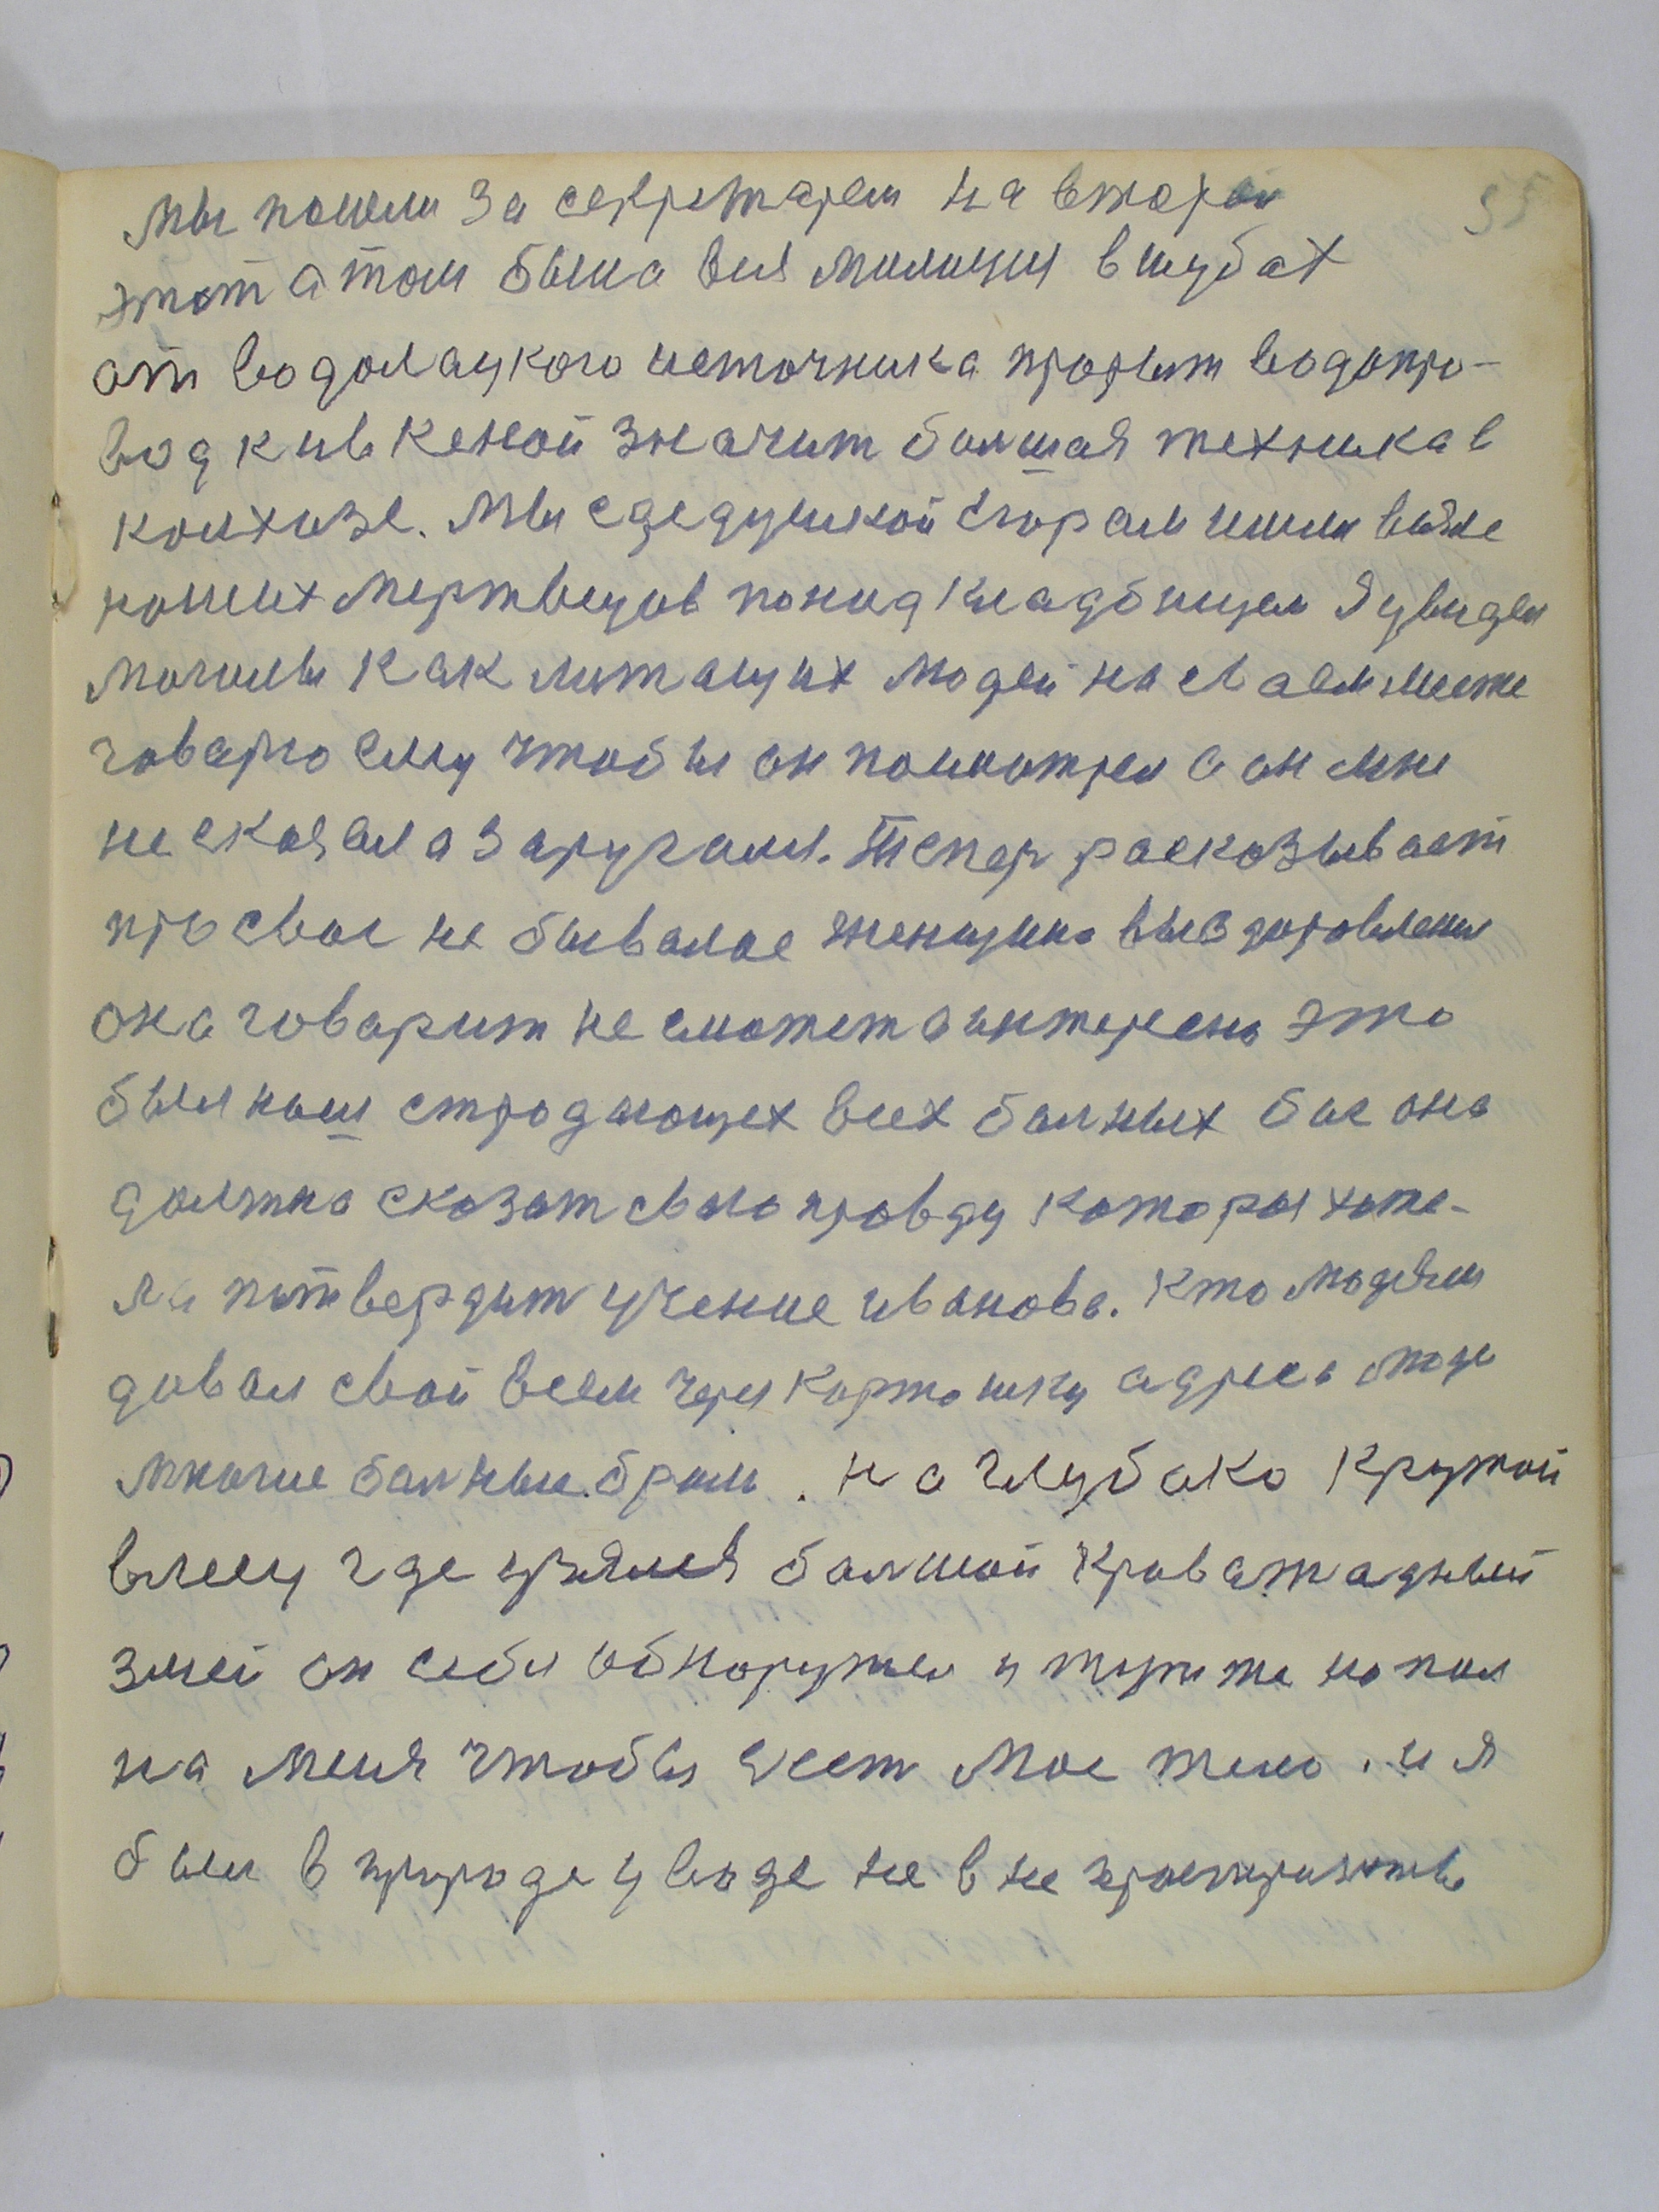 55
мы пошли за секретарем на второй
этот а там была вся милиция в шубах
от водолацкого источника прорыт водопро-
вод к ивкеной значит болшая техника в
колхозе. мы с дедушкой Егорам шли выше
наших мертвецов понад кладбищем я увидел
могилы как литающих людей на сваем месте
говарю ему чтобы он посмотрел а он мне
не сказал а заругался. Тепер расказывает
про свое не бывалое женщина выздоровления
она говарит не сможет а интересно это
был наш страдающех всех балных бое она
должна сказат свою правду которая хоте-
ла потвердит учение иванова. кто людям
давал свой всем через картошку адреса люде
многие балные брали. на глубако крутой
влесу где взялся балшой краважадный
змей он себя обнаружел и тут же напал
на меня чтобы сест мое тело. и я
был в природе у воде не в не